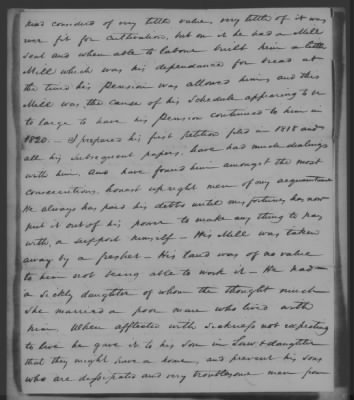 was considered of very little value, very little of it was
ever fit for cultivation, but on it he had a Mill
Seat and when able to labour built him a little
Mill which was his dependance for bread at
the time his Pension was allowed him, and this
Mill was the cause of his Schedule appearing to be
to large to have his Pension continued to him in
1820. — I prepared his first petition filed in 1818 and
all his subsequent papers, have had much dealings
with him, and have found him amongst the most
conscientious, honest upright men of my acquaintance
He always has paid his debts until misfortunes has now
put it out of his power to make any thing to pay
with, or support himself — His Mill was taken
away by a freshet — His land was of no value
to him not being able to work it — He had
a sickly daughter of whom he thought much
She married a poor man who lived with
him, When afflicted with sickness not expecting
to live he gave it to his son in Law & daughter
that they might have a home, and prevent his sons
who are dissipated and very troublesome men from